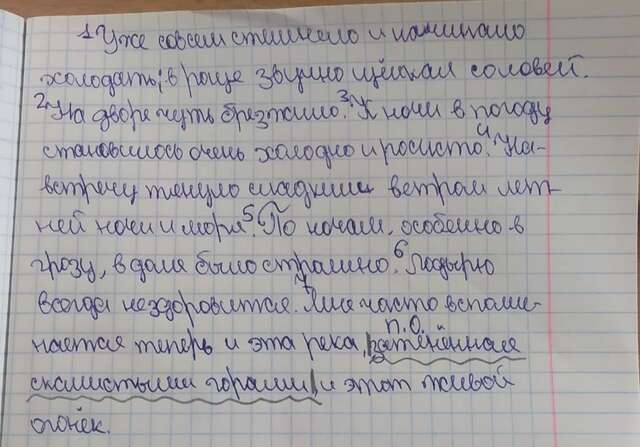 1 Уже совсем стемнело и начинало
холодать; в роще звучно щёлкал соловей.
2 На дворе чуть брезжило. 3 К ночи в погоду
становилось очень холодно и росисто. 4 На-
встречу тянуло сладким ветром лет-
ней ночи и моря. 5 По ночам, особенно в
грозу, в доме было страшно. 6 Лодырю
всегда нездоровится. 7 Мне часто вспоми-
нается теперь и эта река,
п.о.
затенённая
скалистыми горами, и этот живой
огонёк.